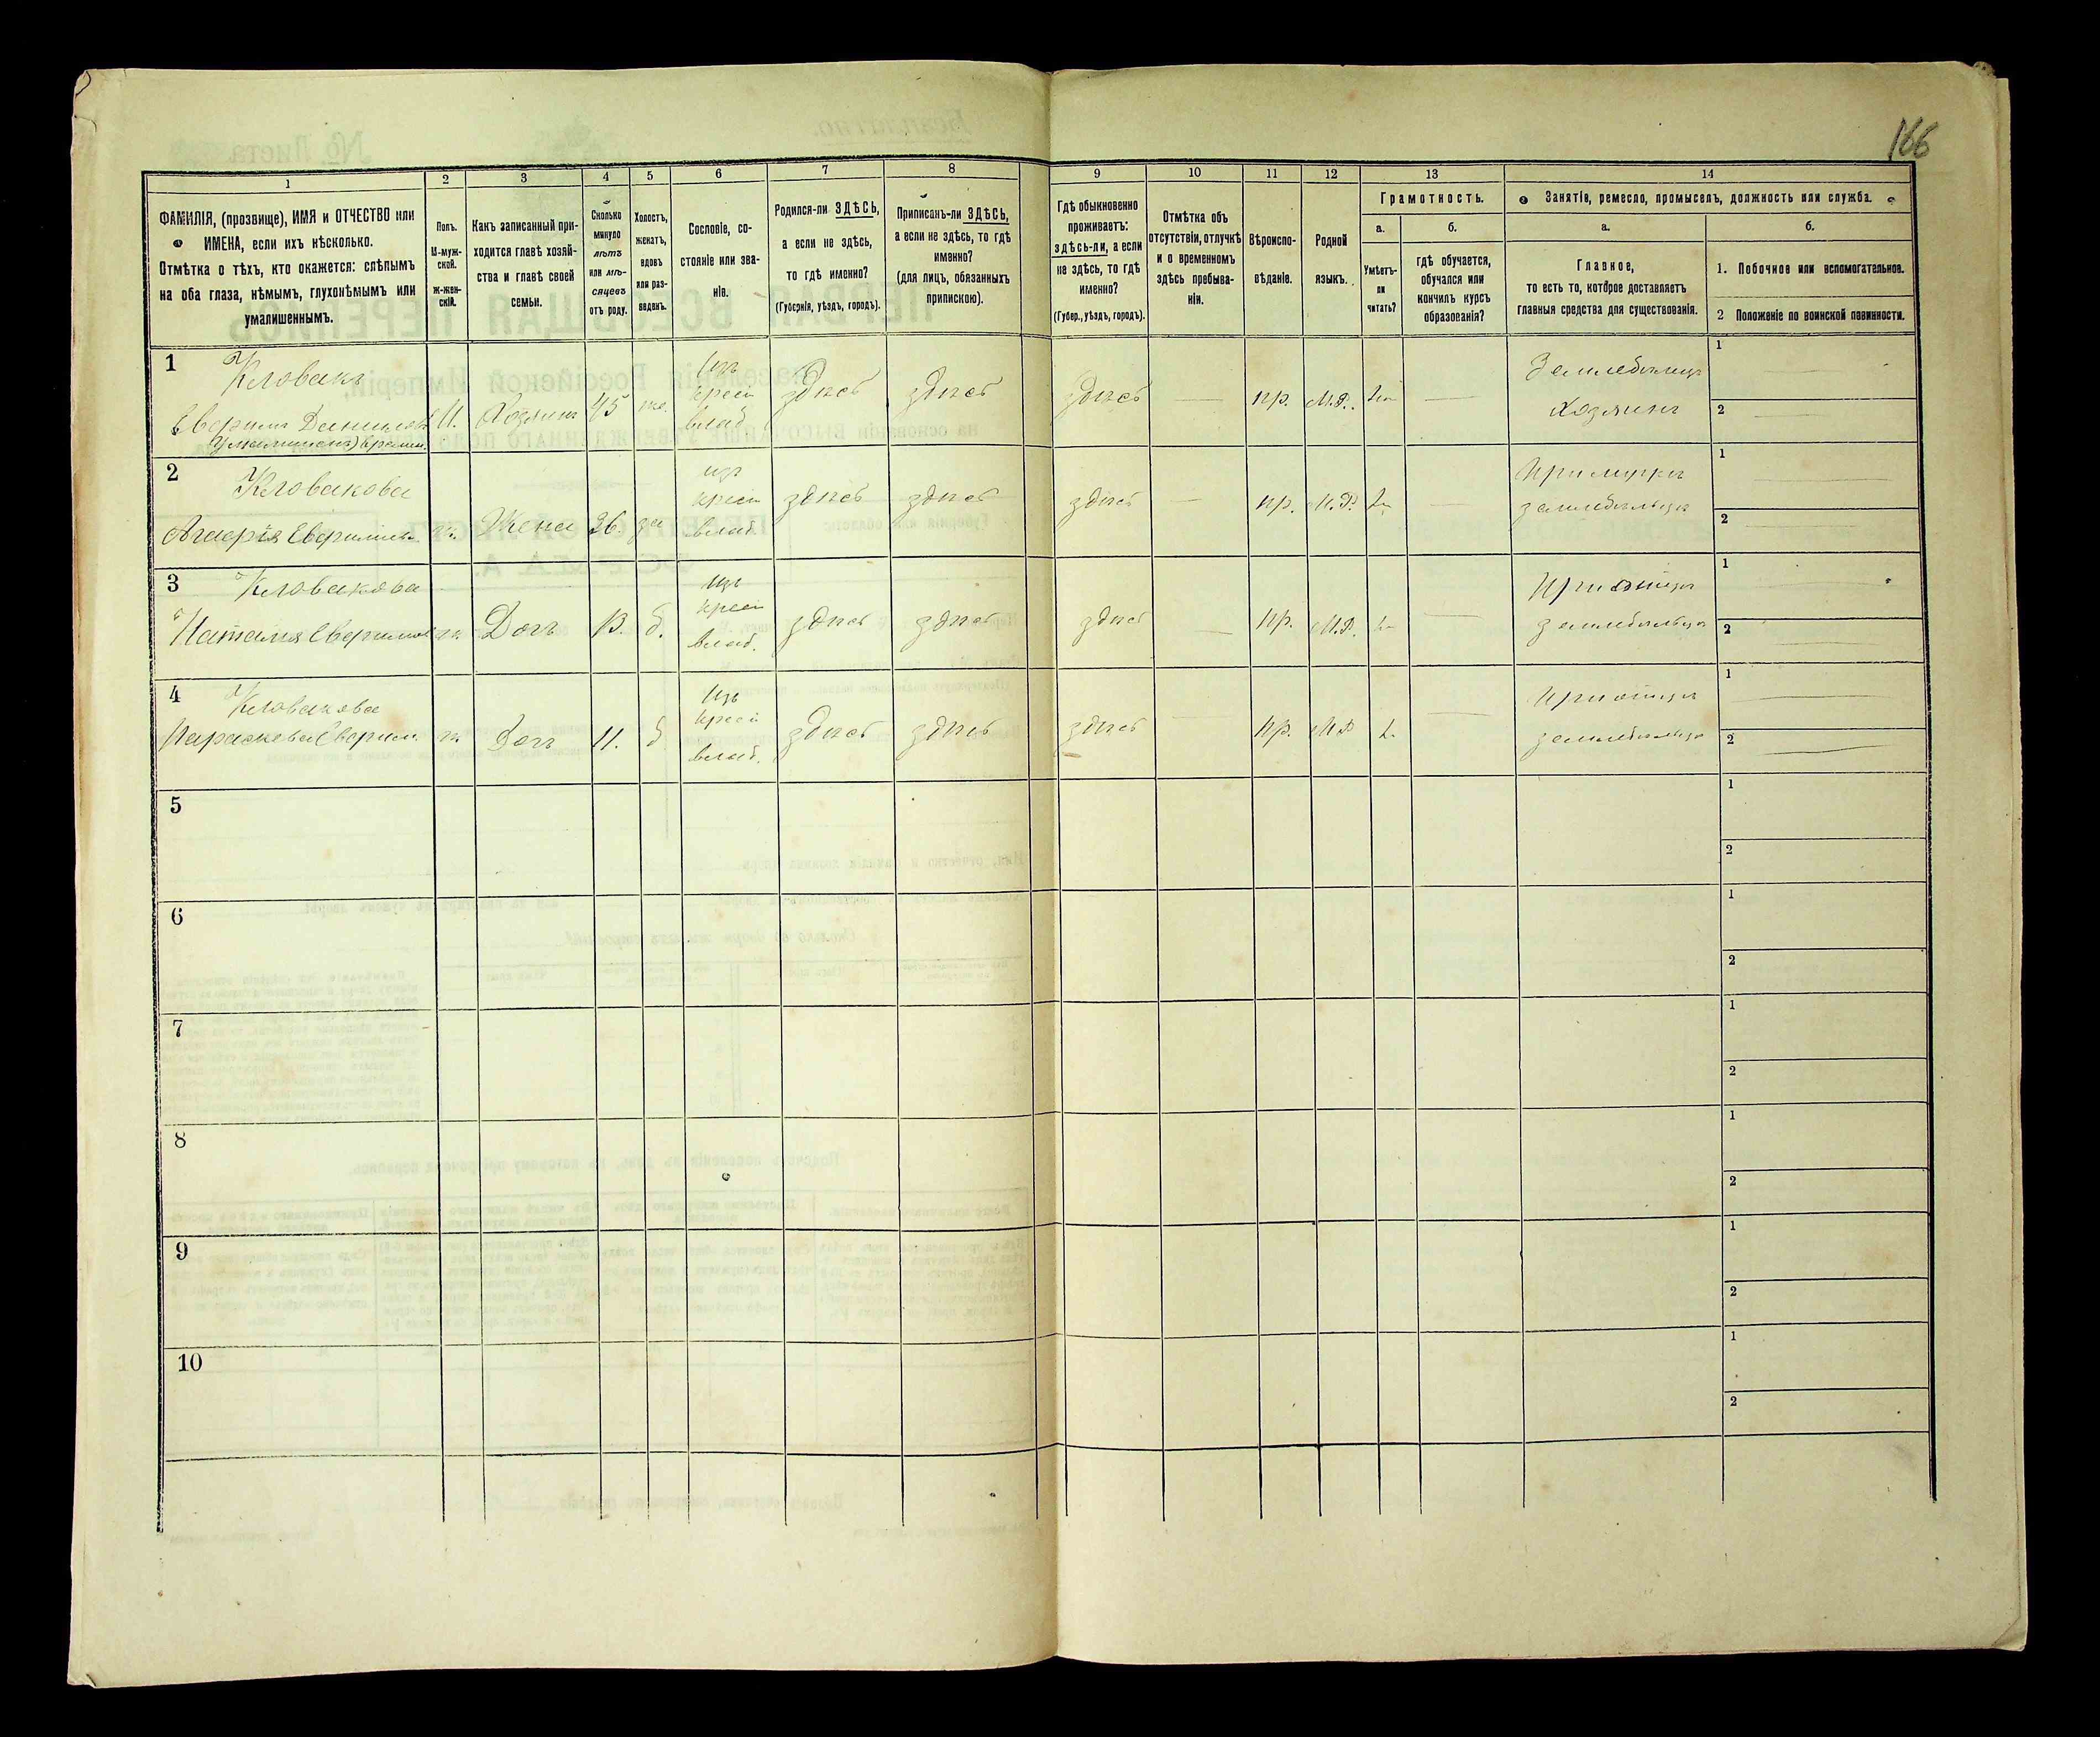 166
1
2
3
4
5
6
7
8
9
10
11
12
13
14
ФАМИЛІЯ, (прозвище), ИМЯ и ОТЧЕСТВО или
ИМЕНА, если ихъ нѣсколько.
Отмѣтка о тѣхъ, кто окажется: слѣпымъ
на оба глаза, нѣмымъ, глухонѣмымъ или
умалишеннымъ.
Полъ.
М-муж-
ской.
ж-жен-
скій.
Какъ записанный при-
ходится главѣ хозяй-
ства и главѣ своей
семьи.
Сколько
минуло
лѣтъ
или мѣ-
сяцевъ
отъ роду.
Холостъ,
женатъ,
вдовъ
или раз-
веденъ.
Сословіе, со-
стояніе или зва-
ніе.
Родился-ли ЗДѢСЬ,
а если не здѣсь,
то гдѣ именно?
(Губернія, уѣздъ, городъ).
Приписанъ-ли ЗДѢСЬ,
а если не здѣсь, то гдѣ
именно?
(для лицъ, обязанныхъ
припискою).
Гдѣ обыкновенно
проживаетъ:
здѣсь-ли, а если
не здѣсь, то гдѣ
именно?
(Губер., уѣздъ, городъ).
Отмѣтка объ
отсутствіи, отлучкѣ
и о временномъ
здѣсь пребыва-
ніи.
Вѣроиспо-
вѣданіе.
Родной
языкъ.
Грамотность.
а.
Умѣетъ-
ли
читать?
б.
гдѣ обучается,
обучался или
кончилъ курсъ
образованія?
Занятіе, ремесло, промыселъ, должность или служба.
а.
Главное,
то есть то, которое доставляетъ
главныя средства для существованія.
б.
1. Побочное или вспомогательное.
2 Положеніе по воинской повинности.
1
Кловакъ
М.
Хозяинъ
45
же.
изъ
крест
влад
здѣсь
здѣсь
здѣсь
—
пр.
М.Р.
—
Земледѣлецъ
хозяинъ
1
2
2
Кловакова
ж.
Жена
36.
за
изъ
крест
влад.
здѣсь
здѣсь
здѣсь
—
пр.
М.Р.
При мужѣ
земледѣлецъ
1
2
3
Кловакова
Наталія
ж.
Дочь
13.
д.
изъ
крест
влад.
здѣсь
здѣсь
здѣсь
—
пр.
М.Р.
—
При отцѣ
земледѣлецъ
1
2
4
Кловакова
Параскева
ж.
Дочь
11.
д
изъ
крест
влад.
здѣсь
здѣсь
здѣсь
—
пр.
М.Р
—
При отцѣ
земледѣлецъ
1
2
5
1
2
6
1
2
7
1
2
8
1
2
9
1
2
10
1
2